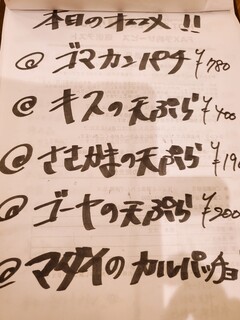 本日のオススメ!!
@ ゴマカンパチ ¥780
@ キスの天ぷら ¥400
@ ささかまの天ぷら ¥19
@ ゴーヤの天ぷら ¥200
@ マダイのカルパッチョ